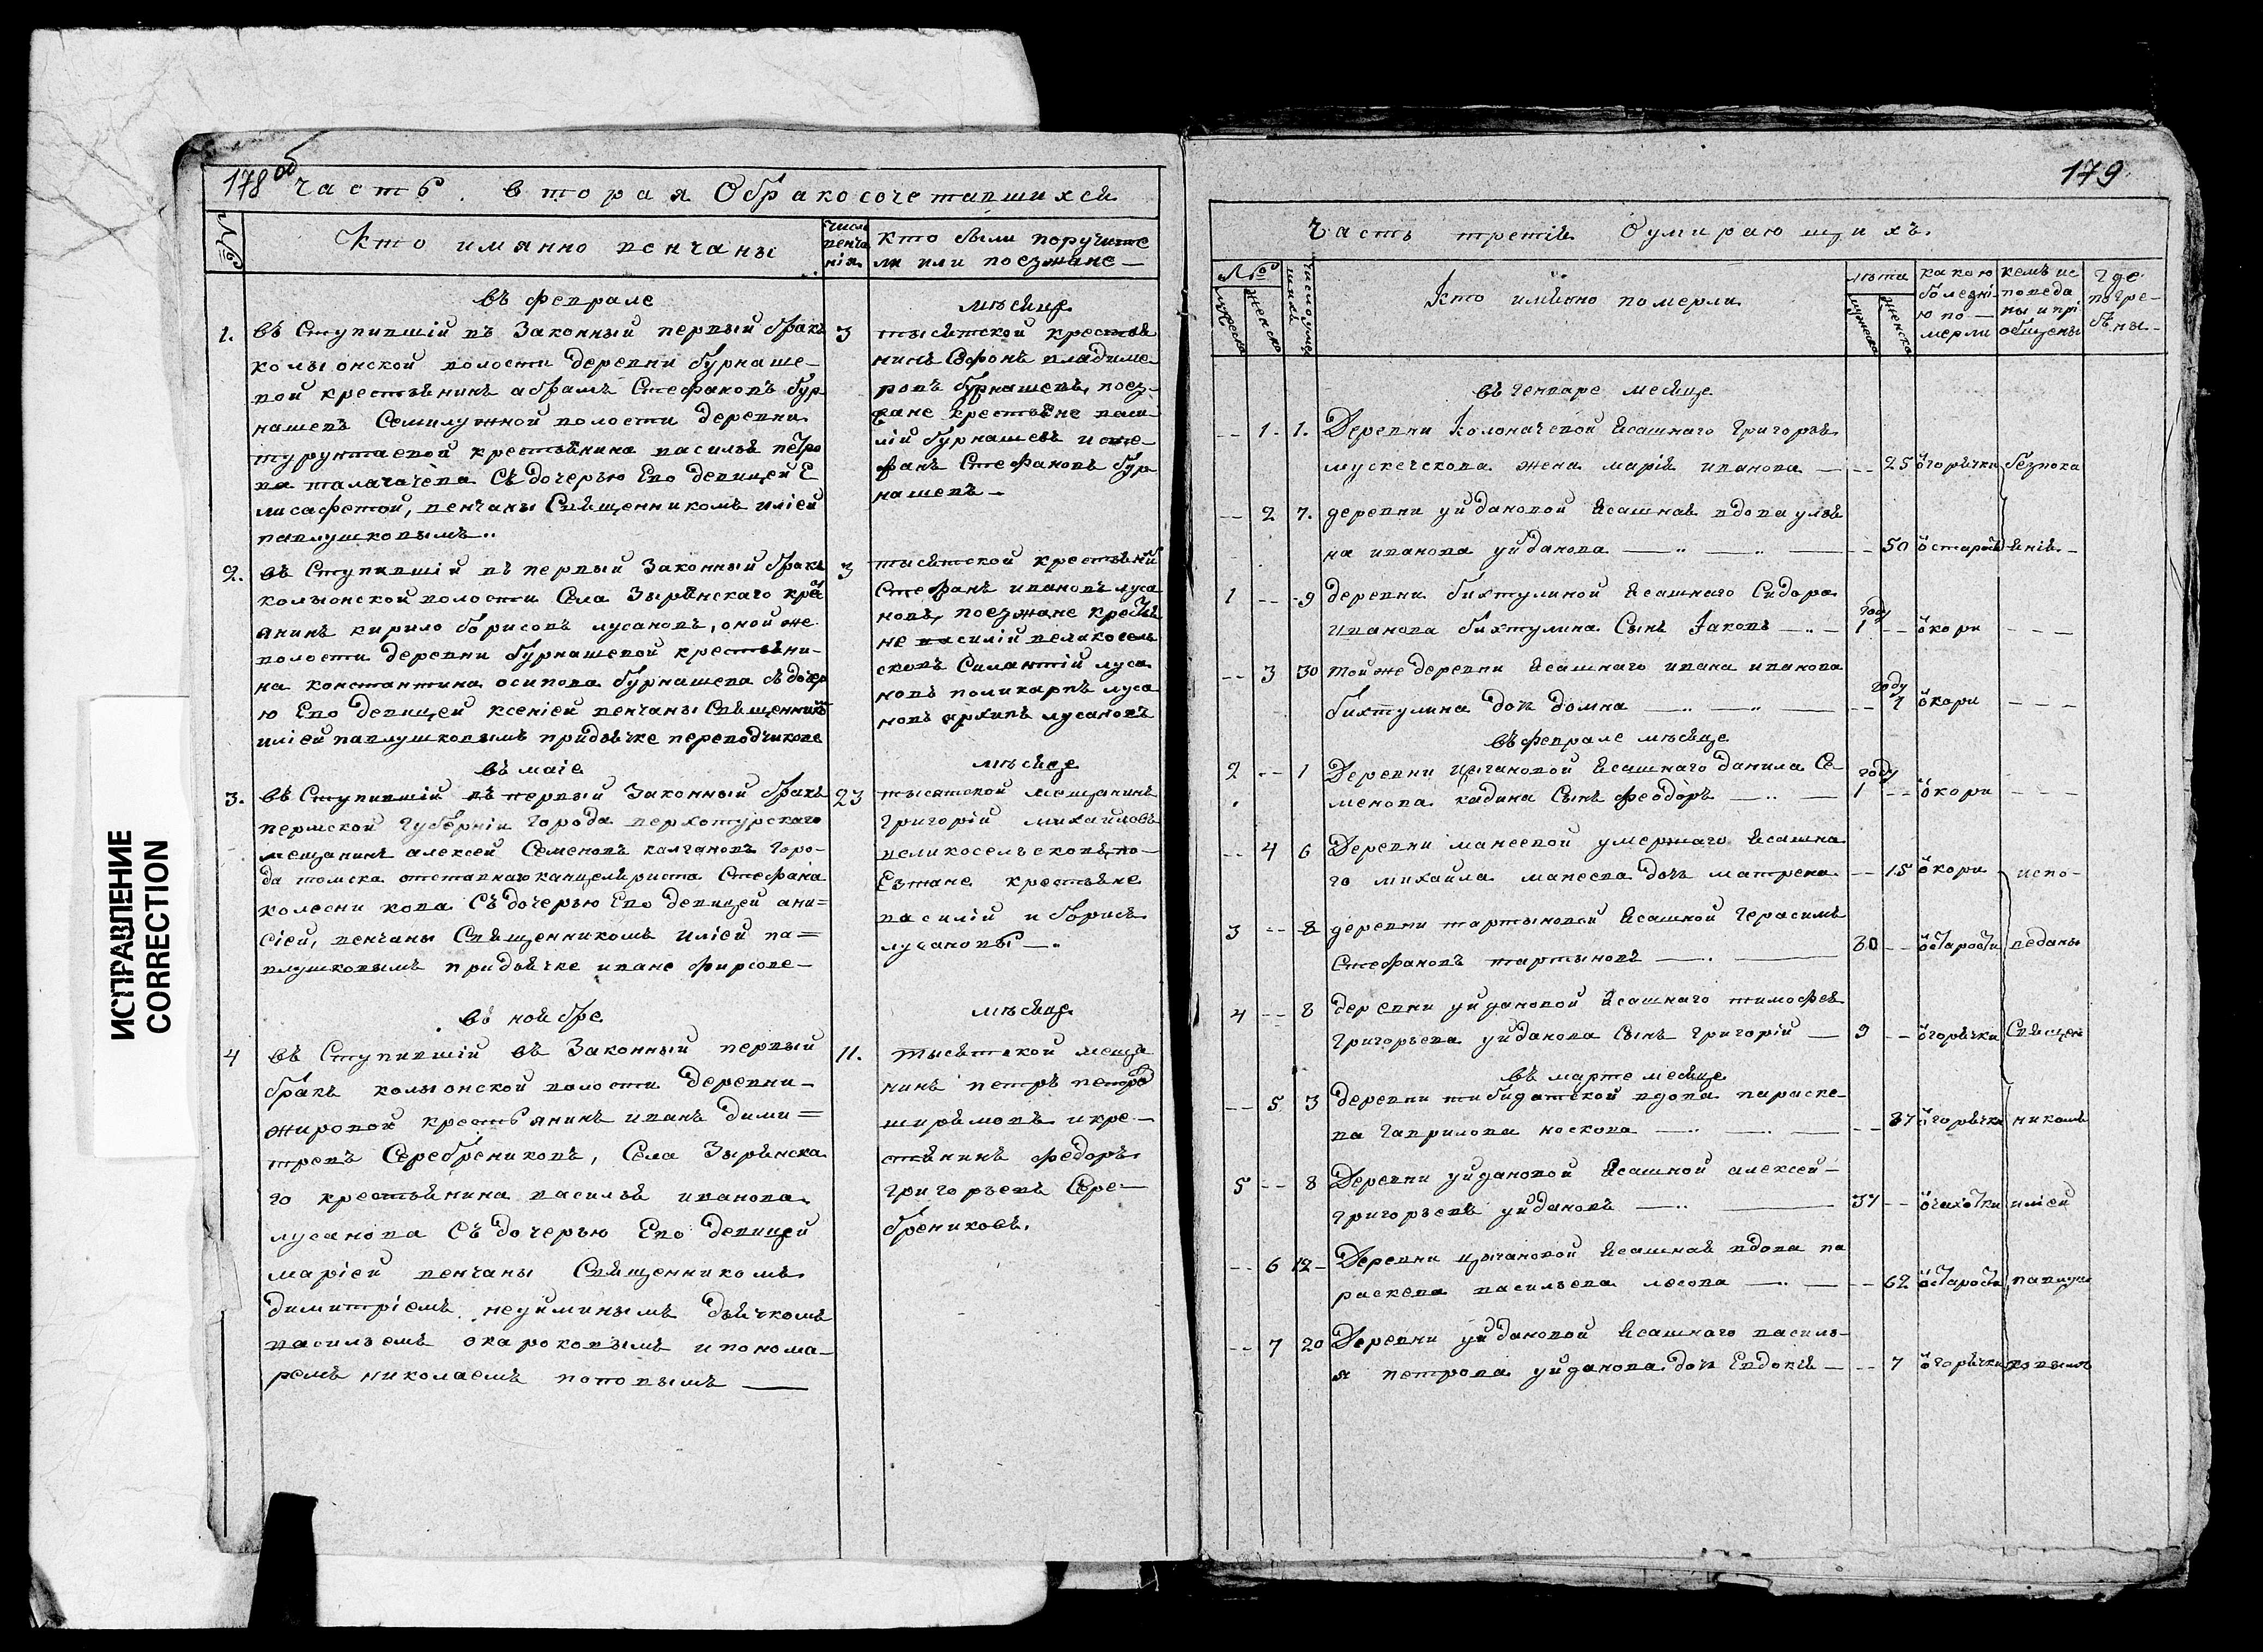 ИСПРАВЛЕНИЕ
CORRECTION
178 об
Часть вторая Обракосочетавшихся
№
Кто имянно венчаны
число венчания
Кто были поручители или поезжане
въ феврале
1.
въ Ступившій въ Законный первый бракъ
колыонской волости деревни бурнаше-
вой крестьянинъ абрамъ Стефановъ бур
нашевъ Семилужной волости деревни
турунтаевой крестьянина василья петро
ва талагачева Съ дочерью Его девицей Е
лисафетой, венчаны Священникомъ иліей
павлушковымъ..
3
месяце
тысятской крестья
нинъ Софонъ владиме
ровъ бурнашевъ, поез-
жане крестьяне васи
лій бурнашевъ и сте-
фанъ Стефановъ бур
нашевъ-
2.
въ Ступившій въ первый Законный бракъ
колыонской волости Села Зырянскаго кре
янинъ кирило борисовъ мусановъ, оной же
волости деревни бурнашевой крестьяни-
на константина осипова бурнашева съ дочер
ю Его девицей ксеніей венчаны Священникомъ
иліей павлушковымъ придьячке переводчикове
3
тысятской крестьяни
Стефанъ ивановъ муса
новъ, поезжане кресть
не василій великосель
сковъ Силантій муса
новъ поликарпъ муса
новъ архипъ мусановъ
въ маіе
3.
въ Ступившій въ первый Законный бракъ
пермской губерніи города верхотурскаго
мещанинъ алексей Семеновъ калчановъ горо-
да томска отставнаго канцеляриста Стефана
колесникова Съ дочерью Его девицей ани=
сіей, венчаны Священникомъ Иліей па=
влушковымъ придьячке иване фирсове-
23
месяце
тысятской мещанинъ
григорій михайловъ
великосельсковъ, по-
Езжане крестьяне
василій и борисъ
мусановы-.
въ ноябре
4
въ Ступившій въ Законный первый
бракъ колыонской волости деревни-
жировой крестьянинъ иванъ дими=
тревъ Серебрениковъ, Села Зырянска
го крестьянина василья иванова
мусанова Съ дочерью Его девицей
маріей венчаны Священникомъ
димитріемъ неуйминымъ дьячкомъ
васильемъ окароковымъ и понома-
ремъ николаемъ поповымъ —
11.
месяце
тысятской меща
нинъ петръ петро
ширямовъ и кре-
стянинъ федоръ
григорьевъ Сере-
брениковъ.
179
Часть третія Оумирающихъ.
№
мужеска
женска
число умершихъ
Кто имянно померли
лета
мужеска
женска
какою
болезні-
ю по-
мерли
кемъ ис
поведа
ны и прі
общены
где
погре-
бѣны-
въ генваре месяце
-- 1- 1. Деревни Колоначевой Ясашнаго григорья
мускечекова жена марія иванова — -- 25 огорячки безпока
-- 2 7. деревни уйдановой Ясашная вдова улья
на иванова уйданова — -- 50 остарости Янія-
1 -- 9 деревни бихтулиной Ясашнаго Сидора
иванова бихтулина Сынъ Іаковъ — году 1 -- окори - - -
-- 3 30 той же деревни Ясашнаго ивана иванова
бихтулина дочь домна — -- году 1 окори - - -
въ феврале месяце
2 -- 1 Деревни цыгановой Ясашнаго данила Се-
менова кадина Сынъ феодоръ — году 1 -- окори - - -
-- 4 6 Деревни манеевой умершаго Ясашна
го михайла манеева дочь матрена -- 15 окори испо-
3 -- 8 деревни тартыновой Ясашной герасимъ
Стефановъ тартыновъ — 80 -- остарости веданы
4 -- 8 деревни уйдановой Ясашнаго тимофея
Григорьева уйданова Сынъ Григорій — 9 -- огорячки Священ
въ марте месяце
-- 5 3 деревни тибидатской вдова параске-
ва гаврилова носкова — -- 87 огорячки никомъ
5 -- 8 Деревни уйдановой Ясашной алексей-
григорьевъ уйдановъ — 37 -- очахотки иліей
-- 6 12- Деревни цыгановой Ясашная вдова па
раскева васильева лесова — -- 62 остарости павлуш
-- 7 20 Деревни уйдановой Ясашнаго василь-
я петрова уйданова дочь Евдокія — -- 7 огорячки ковымъ